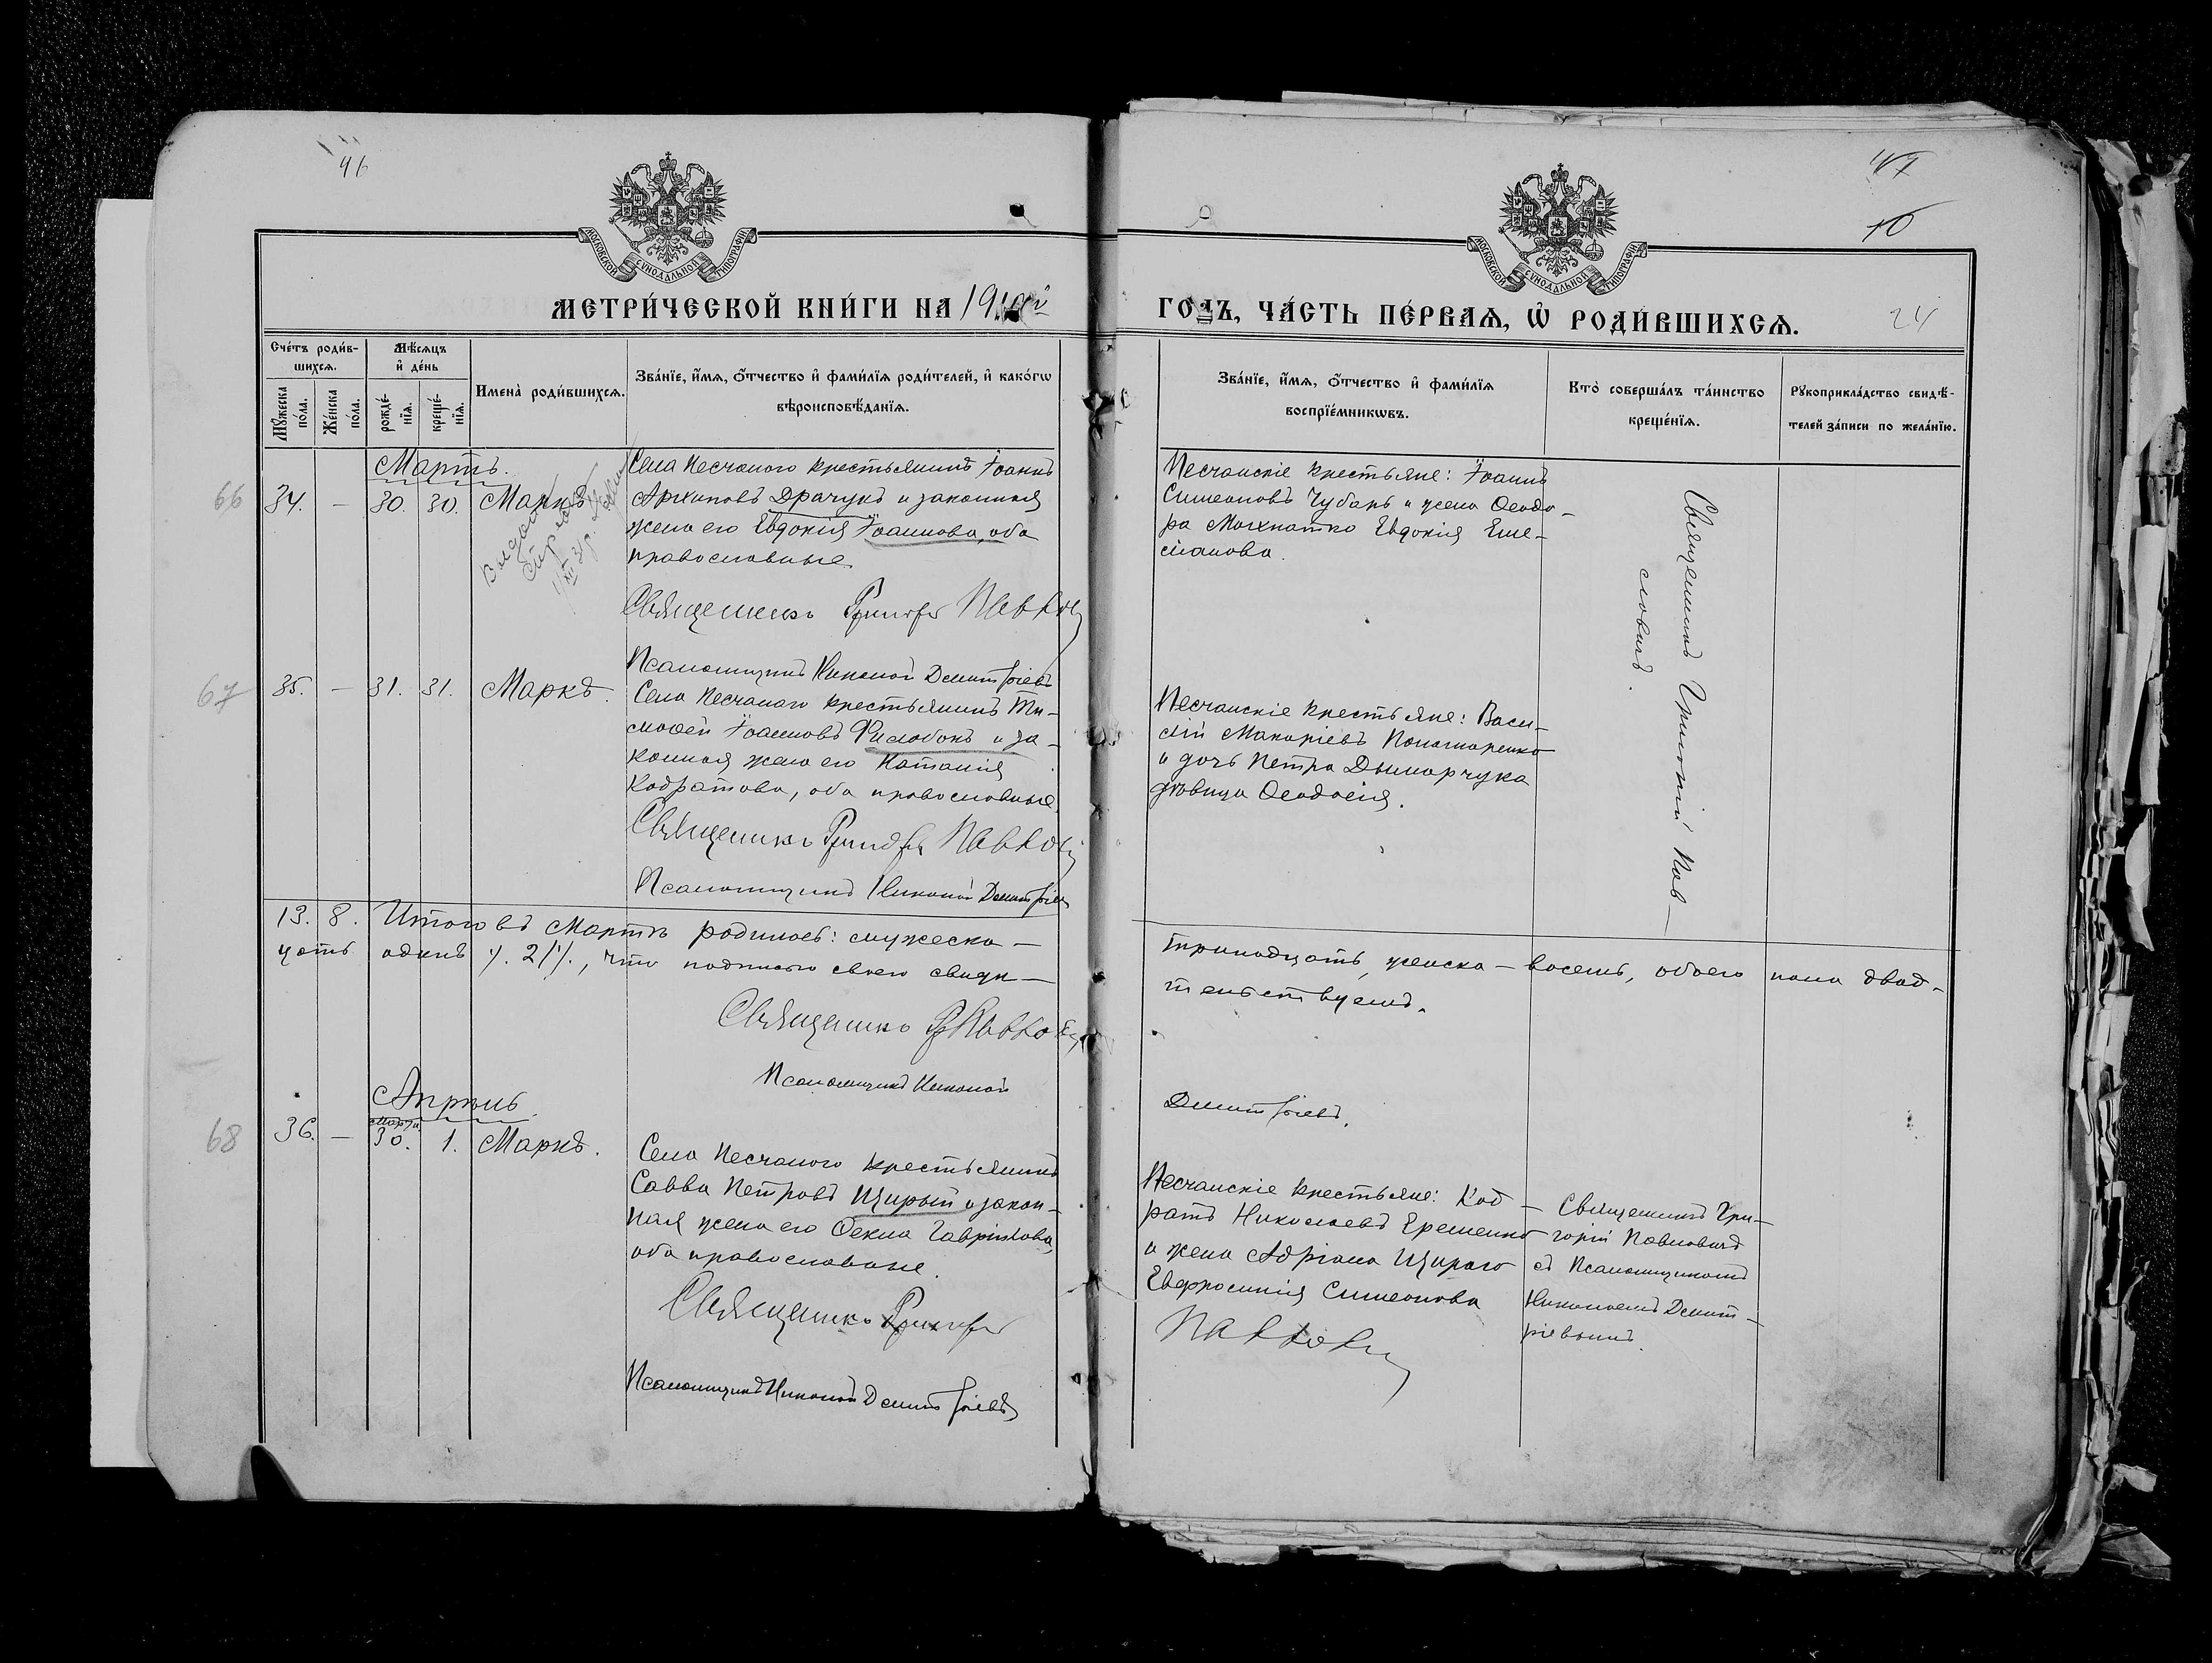 46
47
10
МОСКОВСКОЙ СУНОДАЛЬНОЙ ТИПОГРАФІИ
МОСКОВСКОЙ СУНОДАЛЬНОЙ ТИПОГРАФІИ
МЕТРИ́ЧЕСКОЙ КНИ́ГИ НА 19
ГОДЪ, ЧА́СТЬ ПЕ́РВАѦ, Ѡ҆ РОДИ́ВШИХСѦ.
24
Сче́тъ роди́в-
шихсѧ.
Мѣ́сѧцъ
и҆ де́нь
Мꙋ́жеска
по́ла.
Же́нска
по́ла.
рожде́-
нїѧ.
креще́-
нїѧ.
Имена̀ роди́вшихсѧ.
Зва́нїе, и҆́мѧ, ѻ҆́тчество и҆ фами́лїѧ роди́телей, и҆ како́гѡ
вѣроисповѣ́данїѧ.
Зва́нїе, и҆́мѧ, ѻ҆́тчество и҆ фами́лїѧ
воспрїе́мникѡвъ.
Кто̀ соверша́лъ та́инство
креще́нїѧ.
Рꙋкоприкла́дство свидѣ́-
телей за́писи по жела́нїю.
Мартъ.
66 34. — 30. 30. Маркъ
Села Песчаного крестьянинъ Іоаннъ
Архиповъ Драчукъ и законная
жена его Евдокія Іоаннова, оба
православные.
Священникъ Григорій Павлович
Псаломщикъ Николай Димитріевъ
Песчанскіе крестьяне: Іоаннъ
Симеоновъ Чубань и жена Ѳеодо-
ра Мохнатко Евдокія Еме-
ліанова.
Священникъ Григорій Пав-
ловичъ.
67 35. — 31. 31. Маркъ.
Села Песчаного крестьянинъ Ти-
моѳей Іоанновъ Филобокъ и за-
конная жена его Наталія
Кодратова, оба православные.
Священникъ Григорій Павлович
Псаломщикъ Николай Димитріев
Песчанскіе крестьяне: Васи-
лій Макаріевъ Пономаренко
и дочь Петра Дымарчука
дѣвица Ѳеодосія.
13. 8. Итого въ Мартѣ родилось: мужеска —
тринадцать, женска — восемь, обоего пола двад-
цать одинъ ч. 21 ч., что подписью своею свидѣ-
тельствуемъ.
Священникъ Г Павлович
Псаломщикъ Николай
Димитріевъ.
Апрѣль.
Марта
68 36. — 30. 1. Маркъ.
Села Песчаного крестьянинъ
Савва Петровъ Щирый и закон-
ная жена его Ѳекла Гавріилова,
оба православные.
Священникъ Григорій
Павлович
Псаломщикъ Николай Димитріевъ
Песчанскіе крестьяне: Код-
ратъ Николаевъ Еременко
и жена Адріана Щираго
Евфросинія Симеонова
Священникъ Гри-
горій Павловичъ
съ Псаломщикомъ
Николаемъ Димит-
ріевымъ.